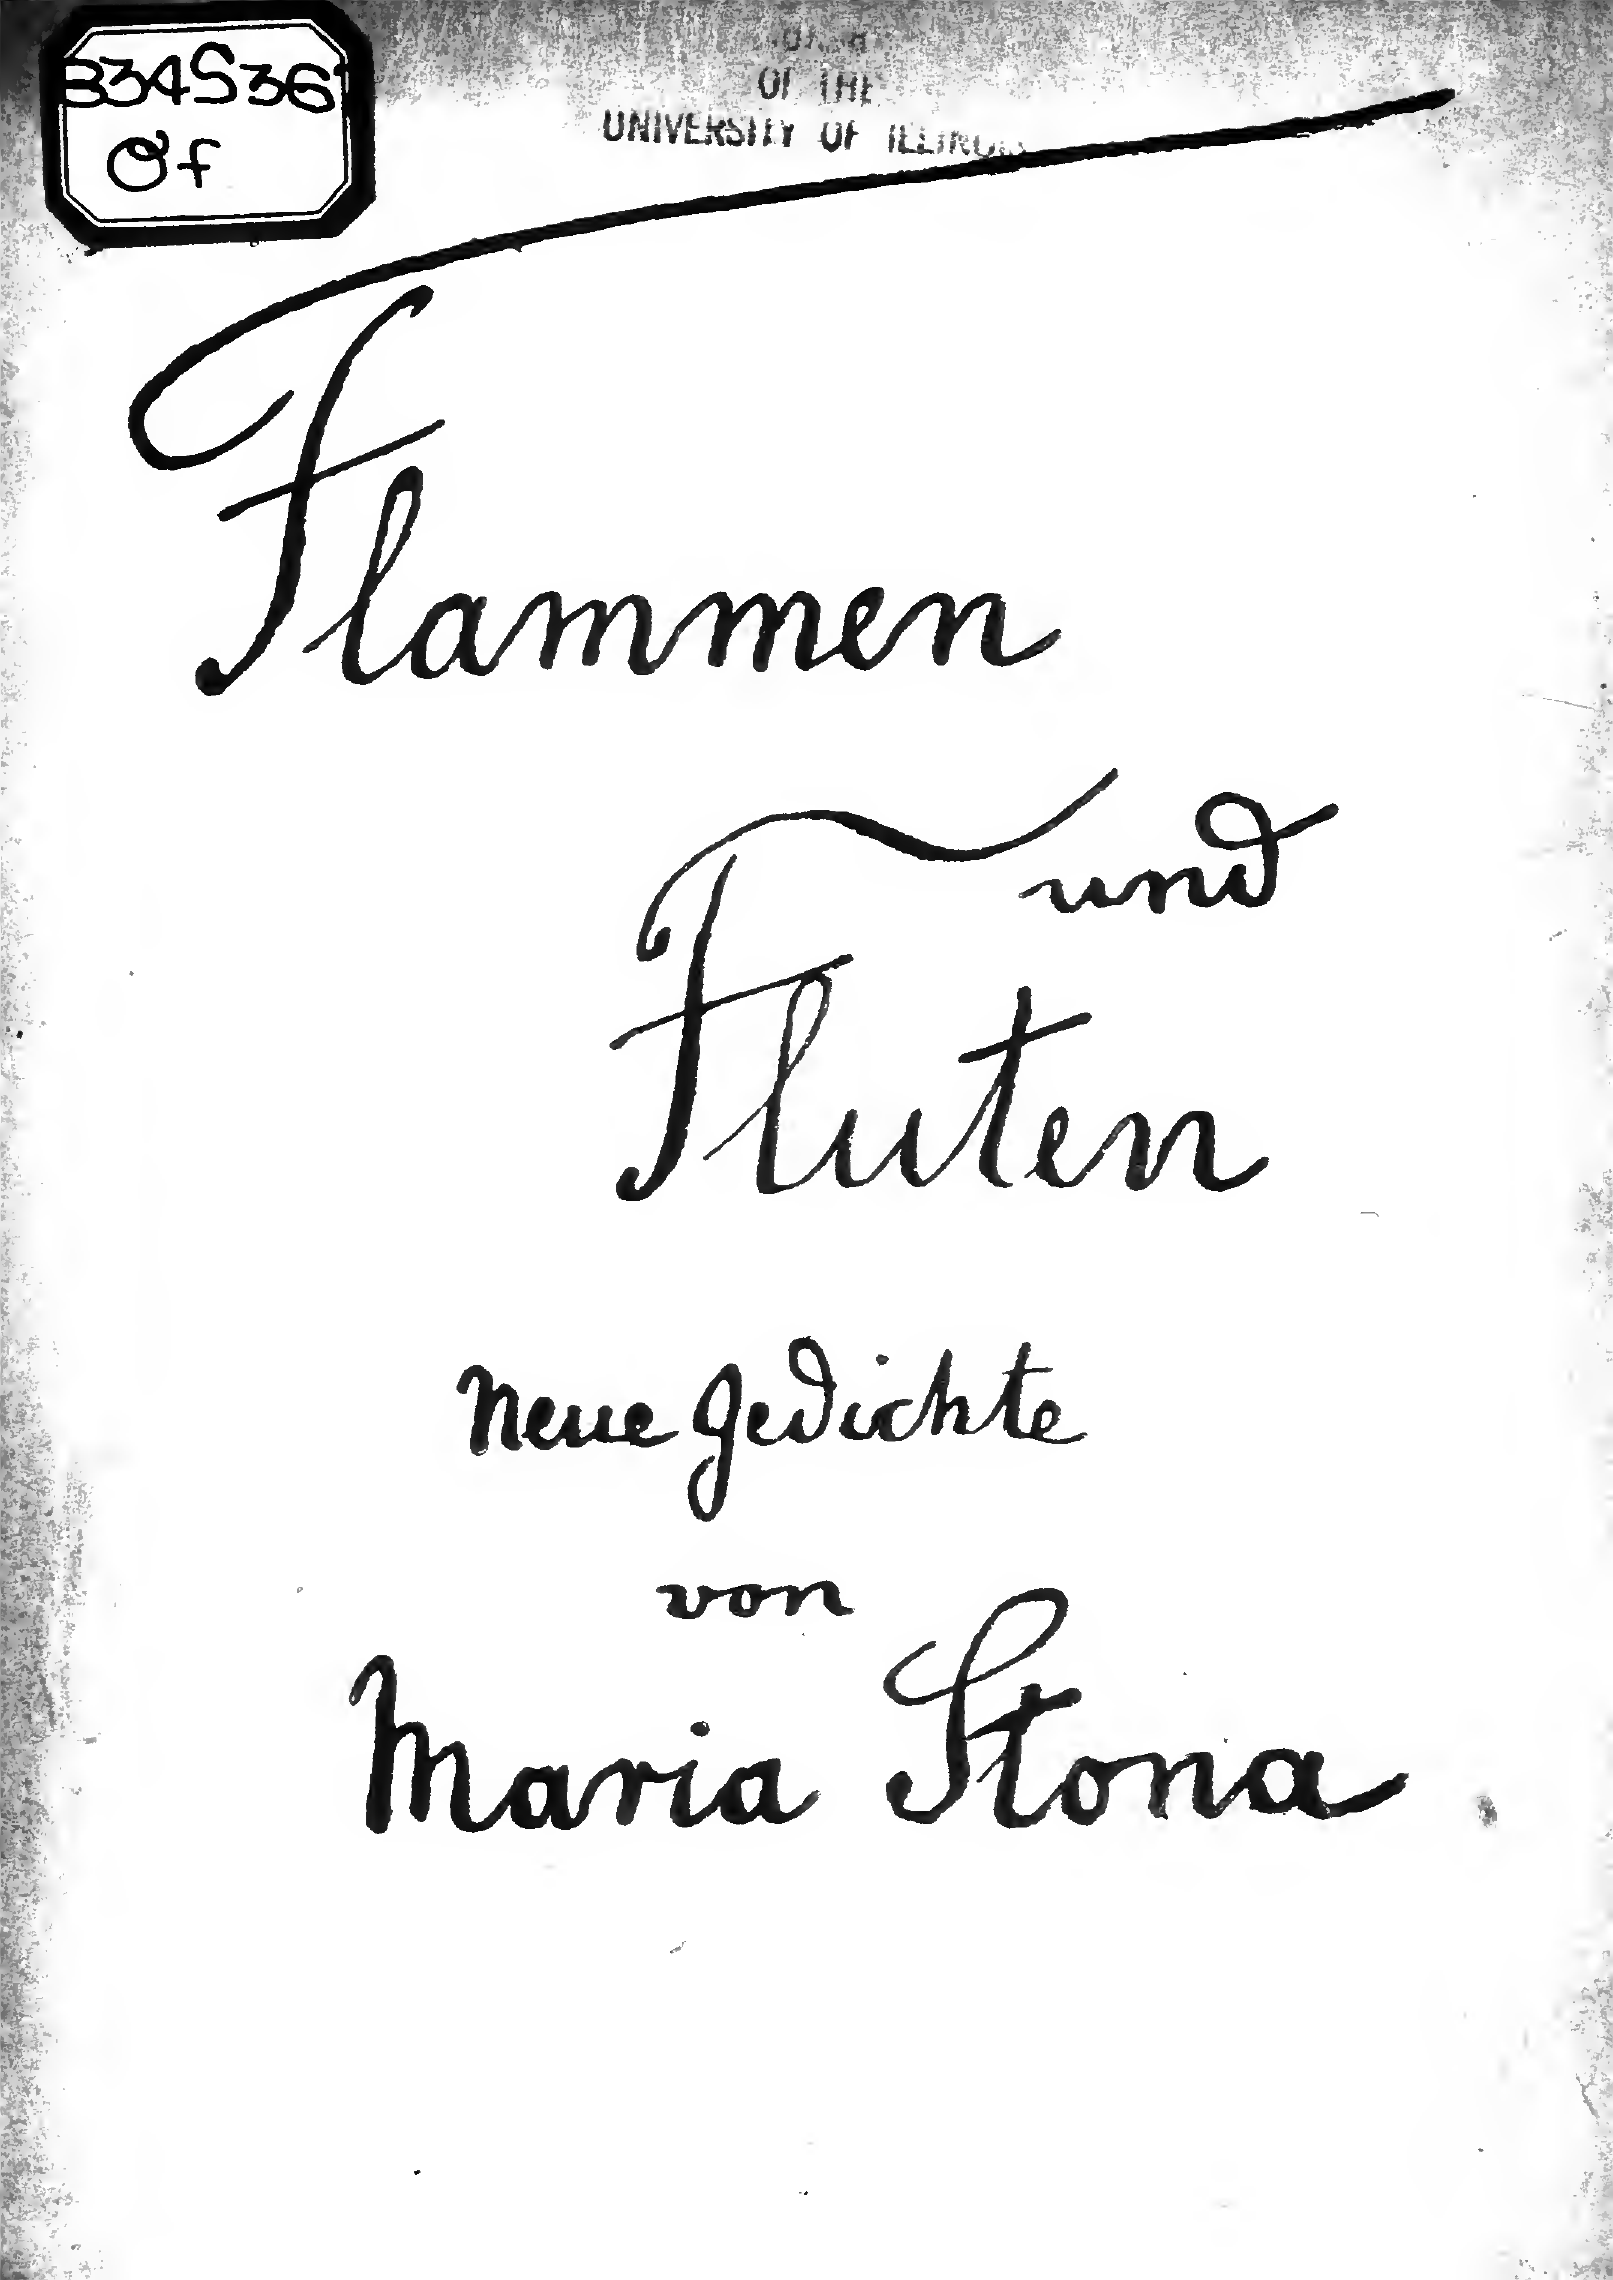 834S36
Of
OF THE
UNIVERSITY OF ILLINOIS
Flammen
und
Fluten
neue Gedichte
von
Maria Stona